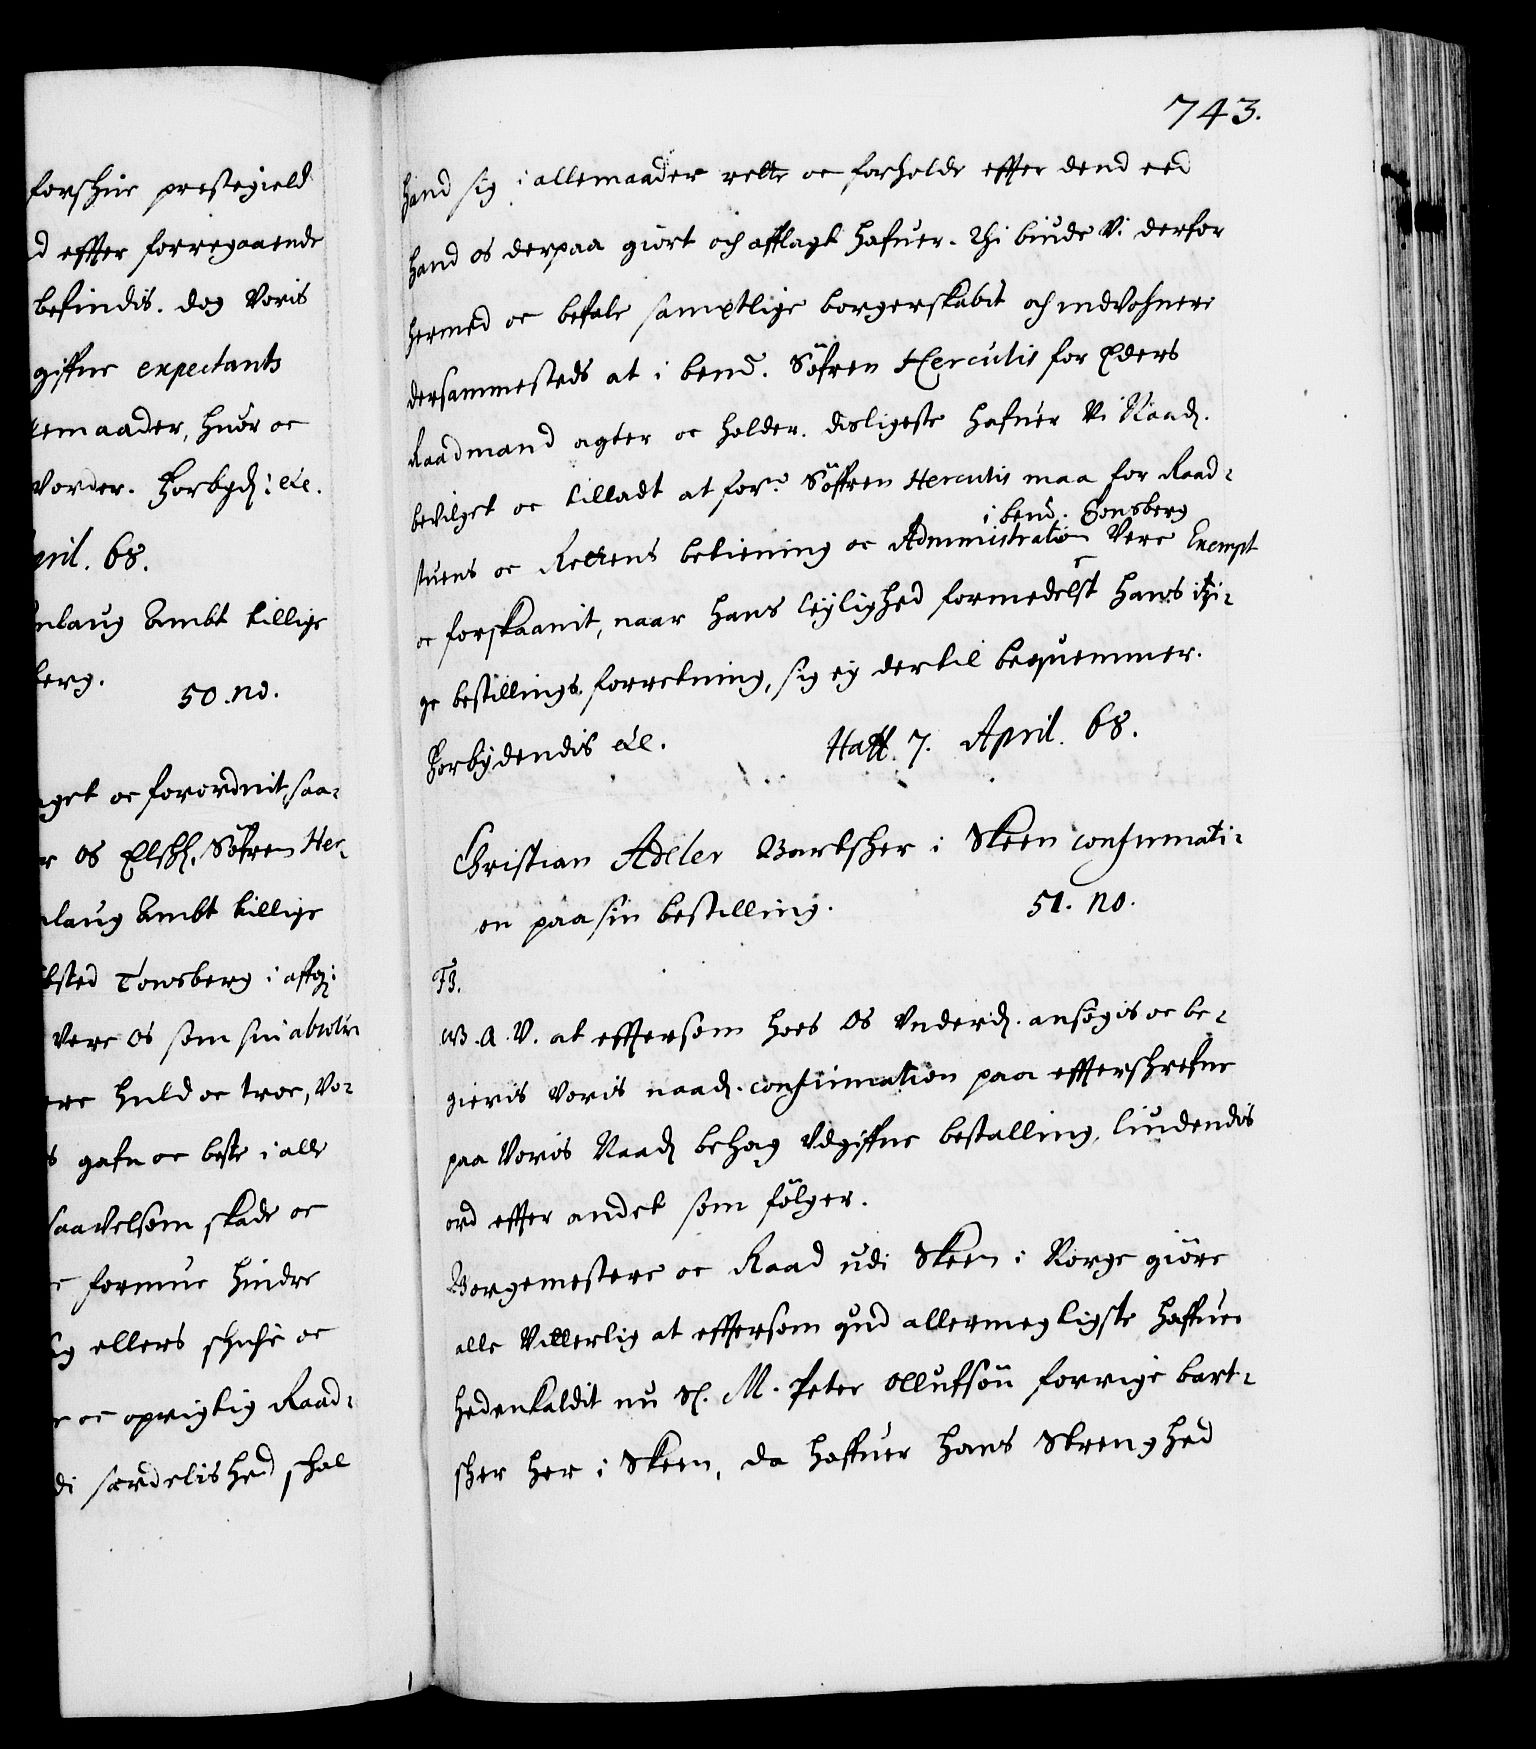 forschie prestegield
d effter forregaaende
befindis. dog Voris
giffne expectants
lemaader, huor oc
Vorder. Forbyd: etc.
pril. 68.
nlaug Ambt tillige
berg.
50. no.
get oc forordnit, saa-
r os Elskel. Söfren Her-
laug Ambt tillige
bsted Tonsberg i affg:
Vere Os som sin absolut
ere huld oc troe, Vo-
s gafn oc beste i alle
saavelsom skade oc
c formue hindre
ellers schule oc
oc oprigtig Raad-
di særdelished schal
743.
hand sig i allemaader rette oc forholde effter dend eed
hand os derpaa giort och afflagt hafuer. Thi biude Vi derfor
hermed oc befale samptlige borgerskabit och indvohnere
dersammesteds at i bend. Söfren Herculis for Eders
Raadmand agter oc holder. disligeste hafuer Vi Naadl.
bevilget oc tilladt at forne Söffren Herculis maa for Raad-
i bend. Tonsberg
stuens oc Rettens betiening oc Administration Vere Exempt
oc forskaanit, naar hans leylighed formedelst hans itzi-
ge bestillings forretning, sig ey dertil bequemmer.
Forbydendis etc.
Haff. 7. April. 68.
Christian Adeler Bartscher i Skeen confirmati-
on paa sin bestilling.
51. no.
F3.
W. A. V. at efftersom hoes Os Vnderdl. ansögis oc be-
gieris Voris naadl. confirmation paa effterschrefne
paa Voris Naadl behag Vdgiffne bestalling, liudendis
ord effter andet som fölger.
Borgemestere oc Raad udi Skeen i Norge giöre
alle Vitterlig at efftersom gud allermegtigste haffuer
hedenkaldit nu Sl. M. Peter Ollufsön forrige bart-
scher her i Skeen, da haffuer hans Strenghed